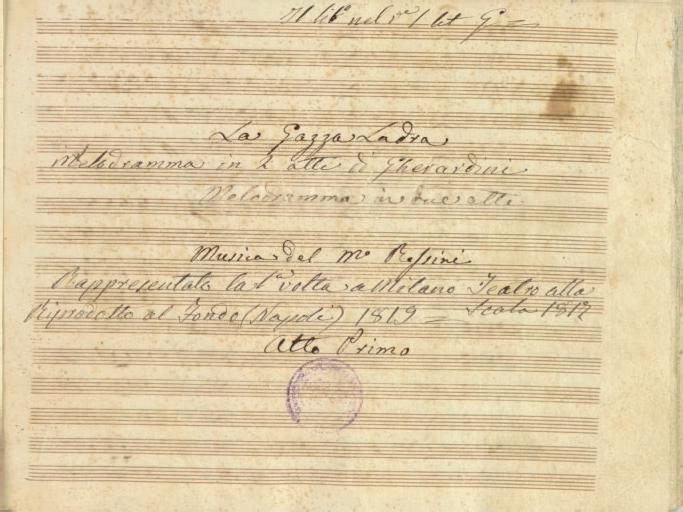 La Gazza Ladra
Melodramma in 2 atti di Gherardini
Melodramma in due atti
Musica del Mº Rossini
Rappresentata la 1ª volta a Milano Teatro alla
Scala 1817
Riprodotto al Fondo (Napoli) 1819 =
Atto Primo